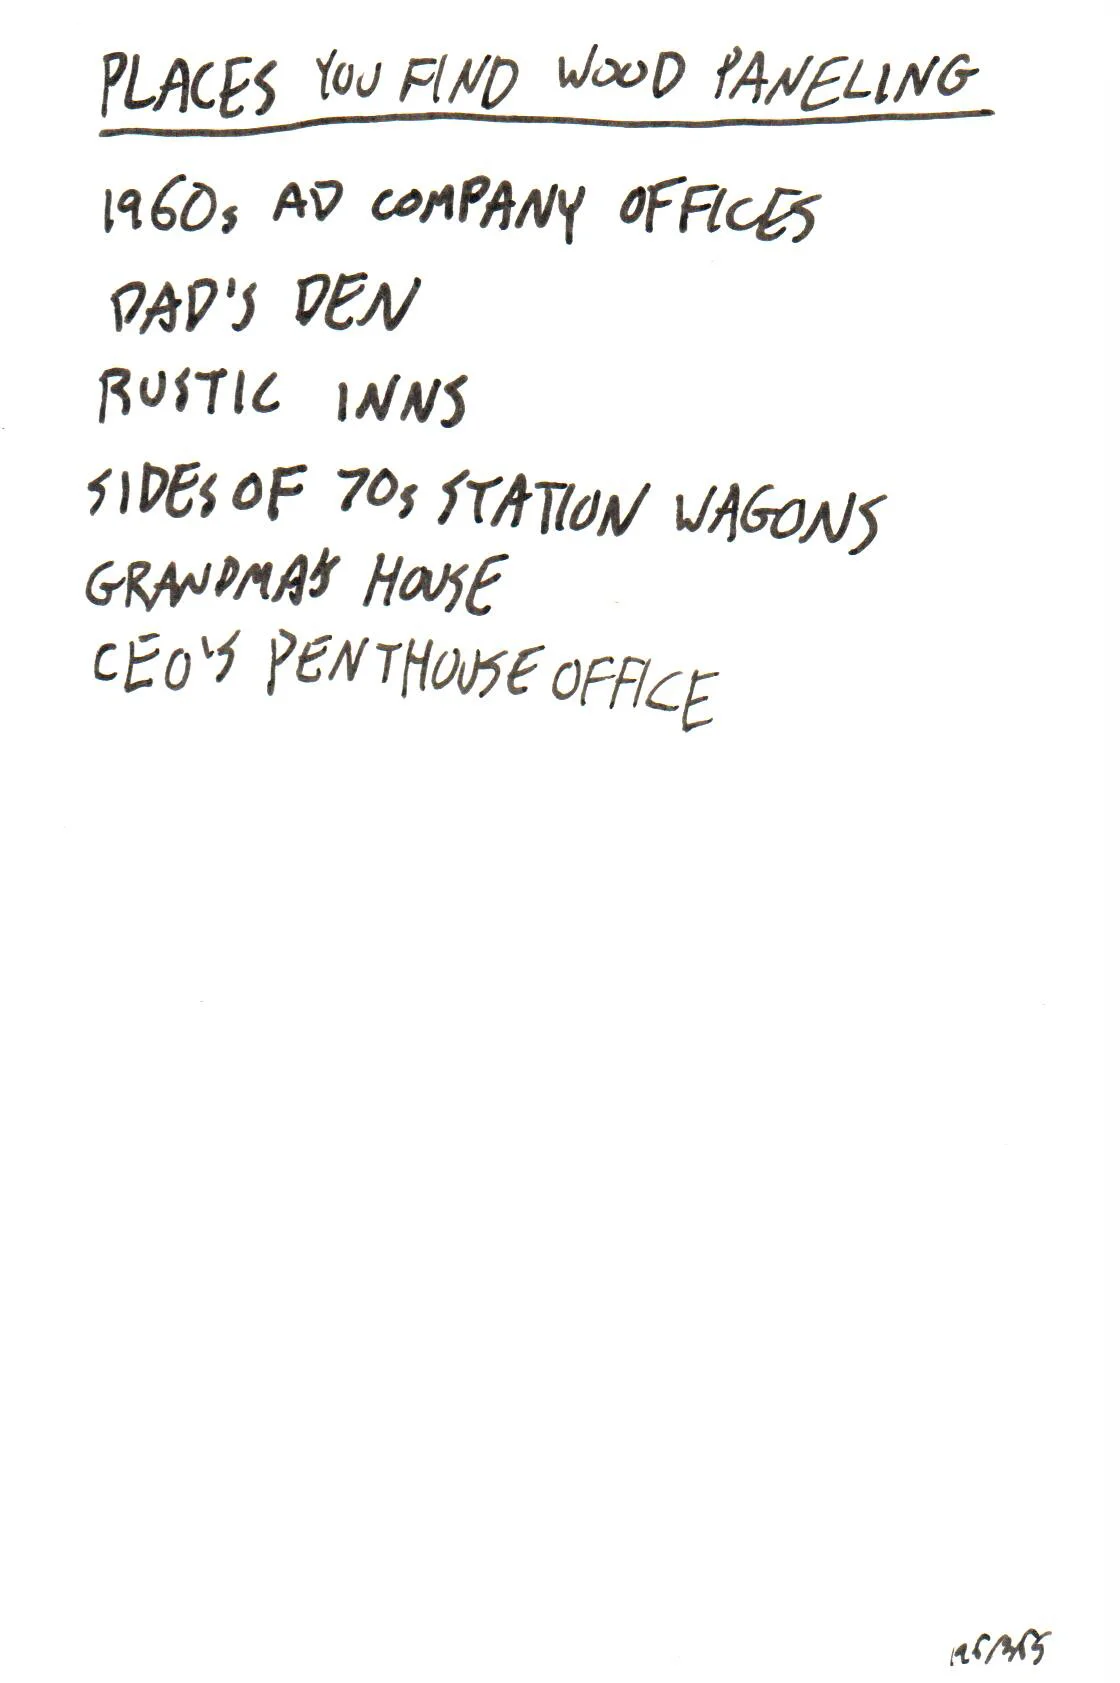 PLACES YOU FIND WOOD PANELING
1960s AD COMPANY OFFICES
DAD'S DEN
RUSTIC INNS
SIDES OF 70s STATION WAGONS
GRANDMA'S HOUSE
CEO'S PENTHOUSE OFFICE